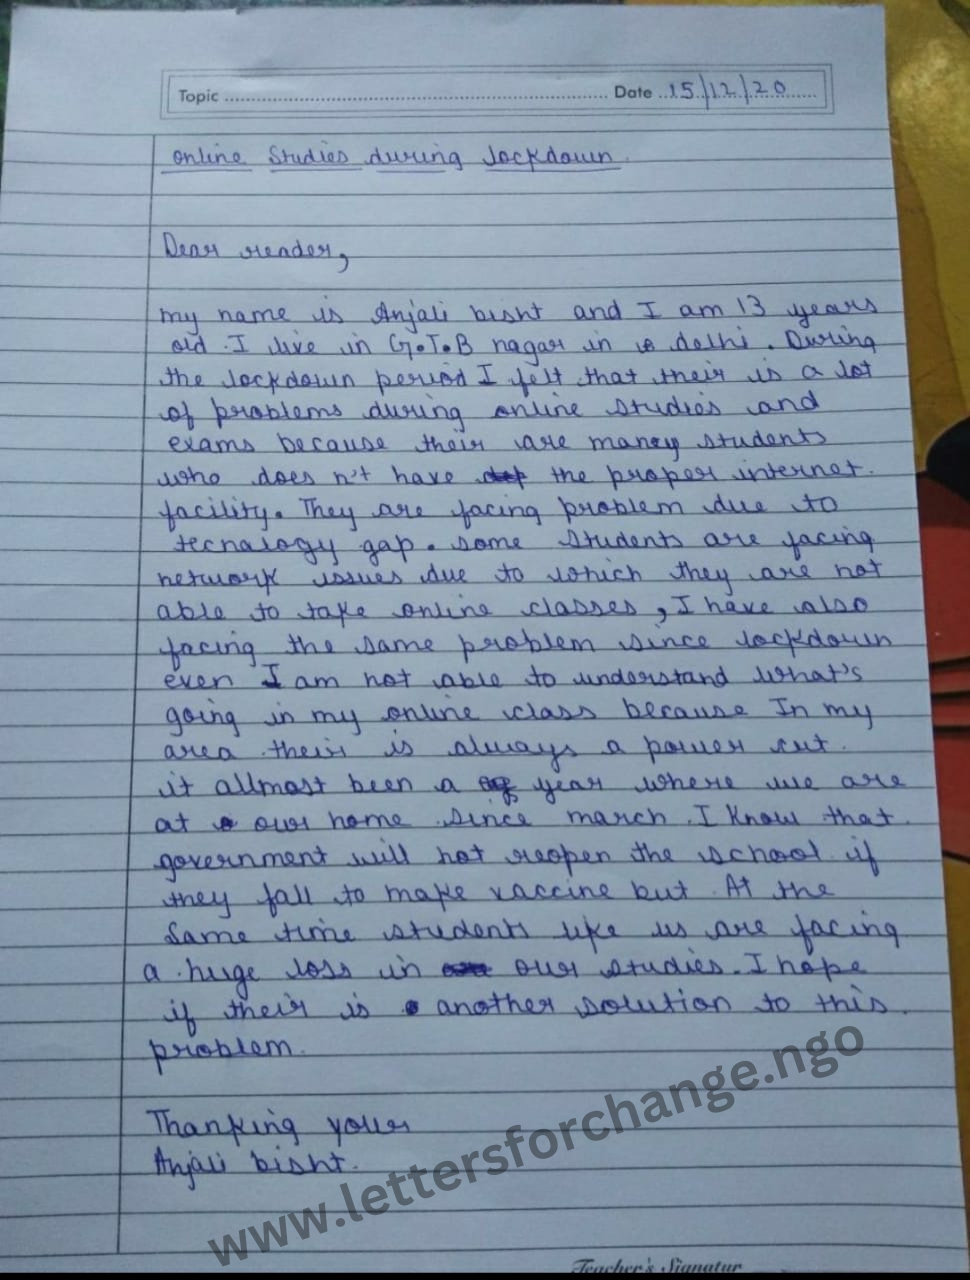 Topic ........ Date 15/12/20
online Studies during lockdown.
Dear reader,
my name is Anjali bisht and I am 13 years
old. I live in G.T.B nagar in delhi. During
the lockdown period I felt that their is a lot
of problems during online studies and
exams because their are many students
who does n't have the proper internet.
facility. They are facing problem due to
tecnalogy gap. some students are facing
network issues due to which they are not
able to take online classes, I have also
facing the same problem since lockdown
even I am not able to understand what's
going in my online class because In my
area their is always a power cut.
it allmost been a year where we are
at our home since march. I know that.
government will not reopen the school if
they fall to make vaccine but At the
Same time students like us are facing
a huge loss in our studies. I hope
if their is another solution to this.
problem.
Thanking your
Anjali bisht.
www.lettersforchange.ngo
Teacher's Signatur